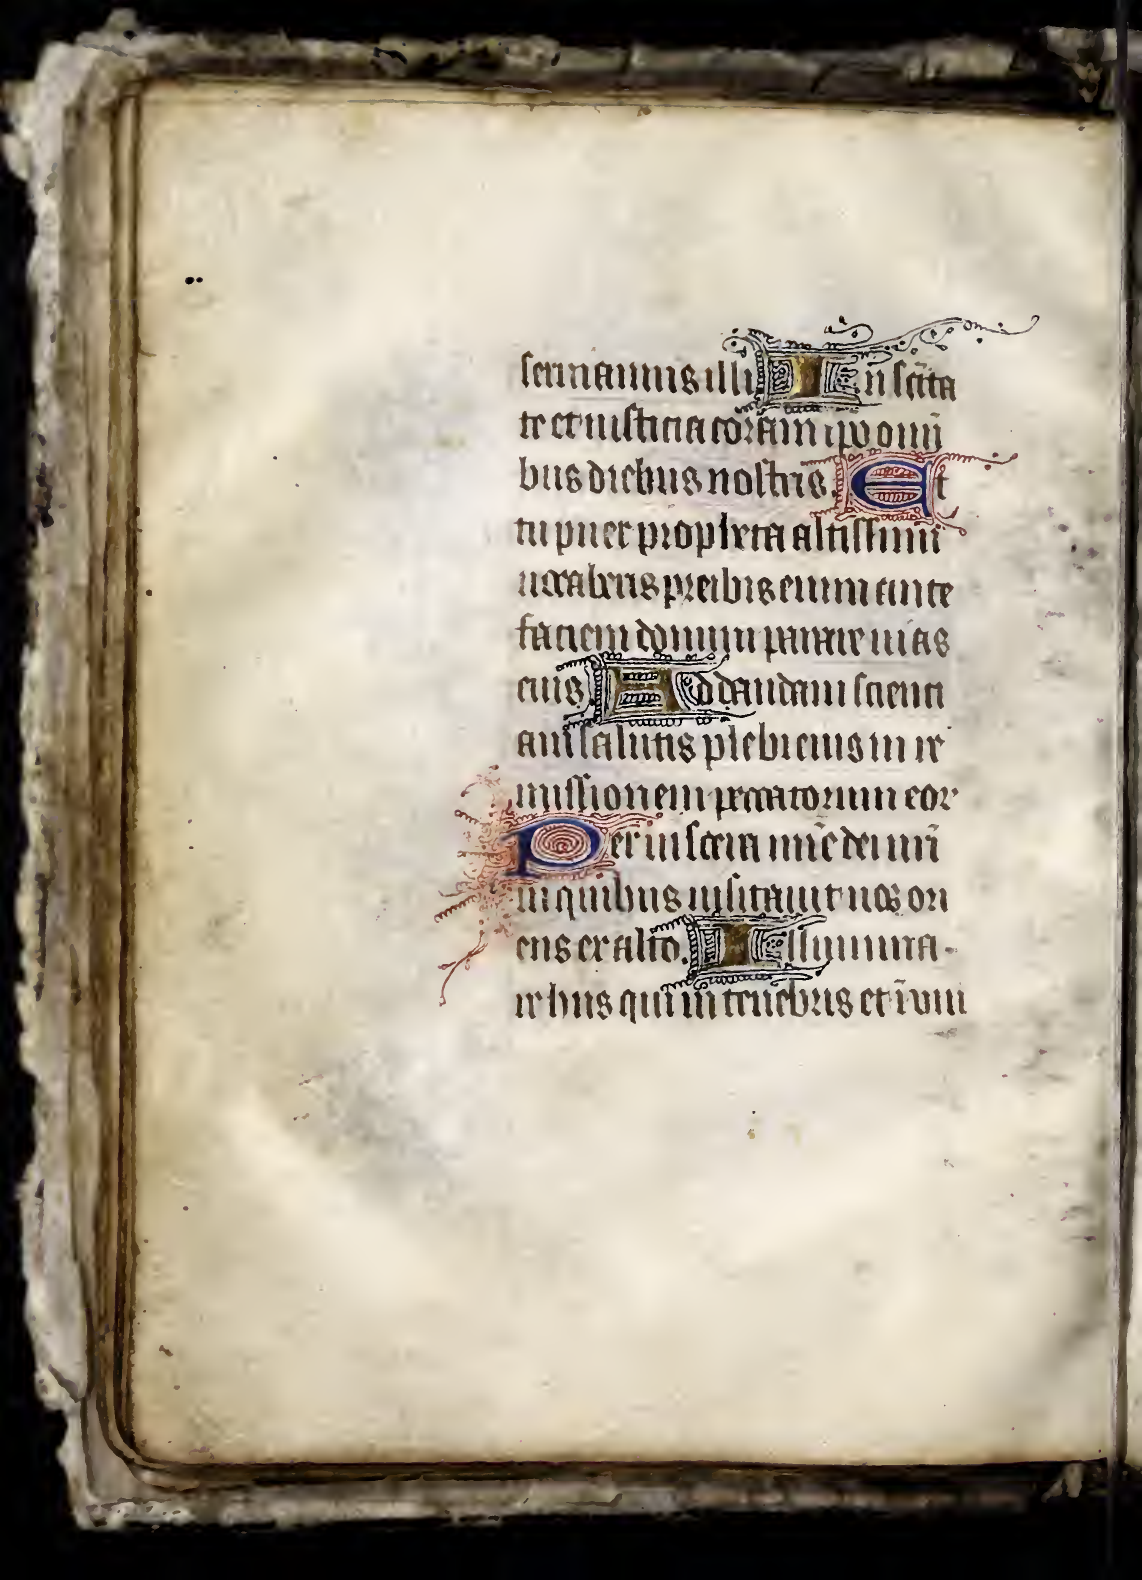 seruiamus illi In sc̄ita
te et iusticia coram ip̄o om̄i
bus diebus nostris. Et
tu puer propheta altissimi
uocaberis preibis enim ante
faciem domini parare uias
eius. Ad dandam scienti
am salutis plebi eius in re
missionem peccatorum eor
Per uiscera mīe dei nr̄i
in quibus uisitauit nos ori
ens ex alto. Illumina-
re hiis qui in tenebris et ī um